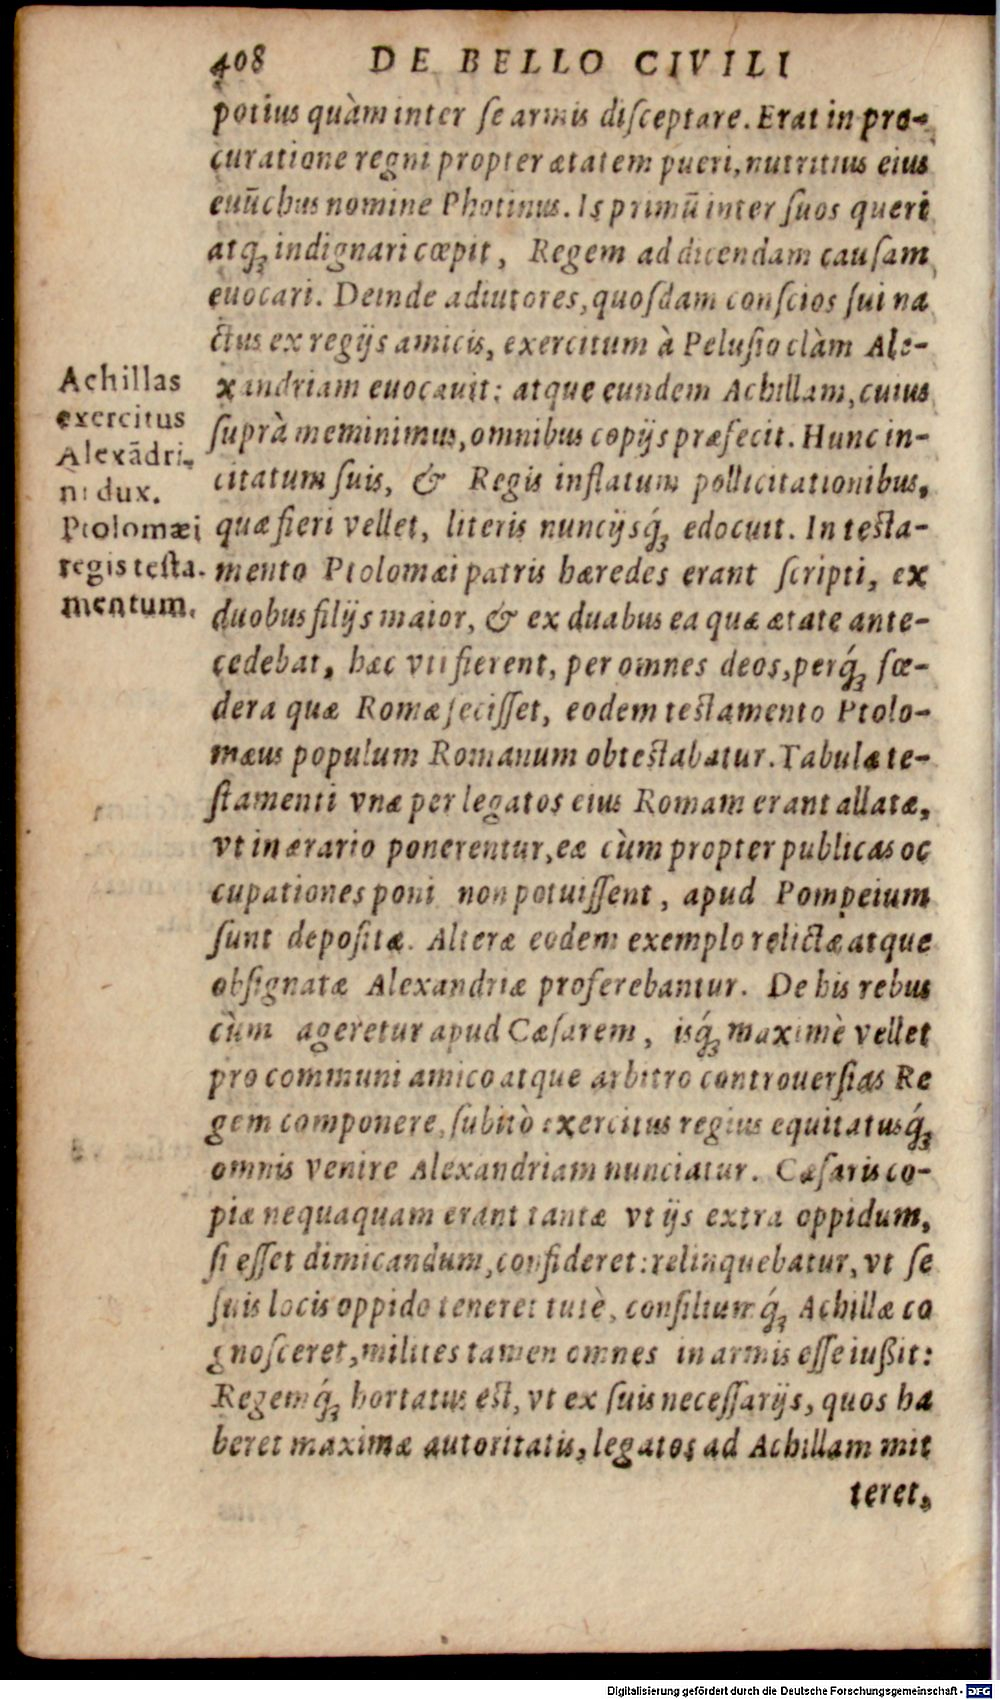 408 DE BELLO CIVILI
potius quàm inter ſe armis diſceptare. Erat in pro-
curatione regni propter ætatem pueri, nutritius eius
euūchus nomine Photinus. Is primū inter ſuos queri
atq́ꝫ indignari cœpit, Regem ad dicendam cauſam
euocari. Deinde adiutores, quoſdam conſcios ſui na
ctus ex regijs amicis, exercitum à Peluſio clàm Ale-
xandriam euocauit: atque eundem Achillam, cuius
ſuprà meminimus, omnibus copijs præfecit. Hunc in-
citatum ſuis, & Regis inflatum pollicitationibus,
quæ fieri vellet, literis nuncijsq́ꝫ edocuit. In teſta-
mento Ptolomæi patris hæredes erant ſcripti, ex
duobus filijs maior, & ex duabus ea quæ ætate ante-
cedebat, hæc vti fierent, per omnes deos, perq́ꝫ fœ-
dera quæ Romæ feciſſet, eodem teſtamento Ptolo-
mæus populum Romanum obteſtabatur. Tabulæ te-
ſtamenti vnæ per legatos eius Romam erant allatæ,
vt in ærario ponerentur, eæ cùm propter publicas oc
cupationes poni non potuiſſent, apud Pompeium
ſunt depoſitæ. Alteræ eodem exemplo relictæ atque
obſignatæ Alexandriæ proferebantur. De his rebus
cùm ageretur apud Cæſarem, isq́ꝫ maximè vellet
pro communi amico atque arbitro controuerſias Re
gem componere, ſubitò exercitus regius equitatusq́ꝫ
omnis venire Alexandriam nunciatur. Cæſaris co-
piæ nequaquam erant tantæ vt ijs extra oppidum,
ſi eſſet dimicandum, confideret: relinquebatur, vt ſe
ſuis locis oppido teneret tutè, conſiliumq́ꝫ Achillæ co
gnoſceret, milites tamen omnes in armis eſſe iußit:
Regemq́ꝫ hortatus eſt, vt ex ſuis neceſſarijs, quos ha
beret maximæ autoritatis, legatos ad Achillam mit
teret,
Achillas
exercitus
Alexādri-
ni dux.
Ptolomæi
regis teſta-
mentum.
Digitalisierung gefördert durch die Deutsche Forschungsgemeinschaft - DFG